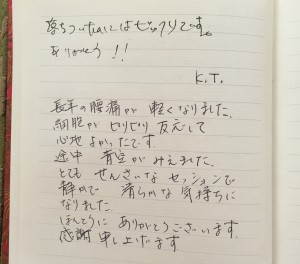 落ちついたのにはビックリです。
ありがとう!!
K.T.
長年の腰痛が軽くなりました。
細胞がピリピリ反応して
心地よかったです。
途中 青空がみえました。
とても せんさいな セッションで
静かで 清らかな 気持ちに
なりました。
ほんとうに ありがとうございます。
感謝申し上げます